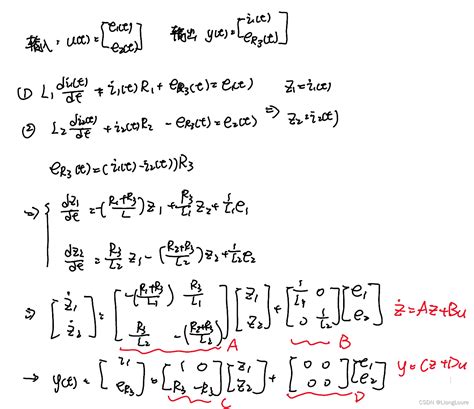 输入: u(t)=[e₁(t) e₂(t)] 输出 y(t)=[i₁(t) e_R₃(t)]
① L₁ di₁(t)/dt + i₁(t)R₁ + e_R₃(t) = e₁(t) z₁=i₁(t)
② L₂ di₂(t)/dt + i₂(t)R₂ - e_R₃(t) = e₂(t) ⇒ z₂=i₂(t)
e_R₃(t)=(i₁(t)-i₂(t))R₃
⇒ { dz₁/dt = -(R₁+R₃/L)z₁ + R₃/L₁ z₂ + 1/L₁ e₁
dz₂/dt = R₃/L₂ z₁ - (R₂+R₃/L₂)z₂ + 1/L₂ e₂
⇒ [ż₁ ż₂] = [-(R₁+R₃/L₁) R₃/L₁ R₃/L₂ -(R₂+R₃/L₂)] [z₁ z₂] + [1/L₁ 0 0 1/L₂] [e₁ e₂] ż=Az+Bu
A B
→ y(t)=[i₁ e_R₃] = [1 0 R₃ -R₃] [z₁ z₂] + [0 0 0 0] [e₁ e₂] y=Cz+Du
C D
CSDN @LiangLoure